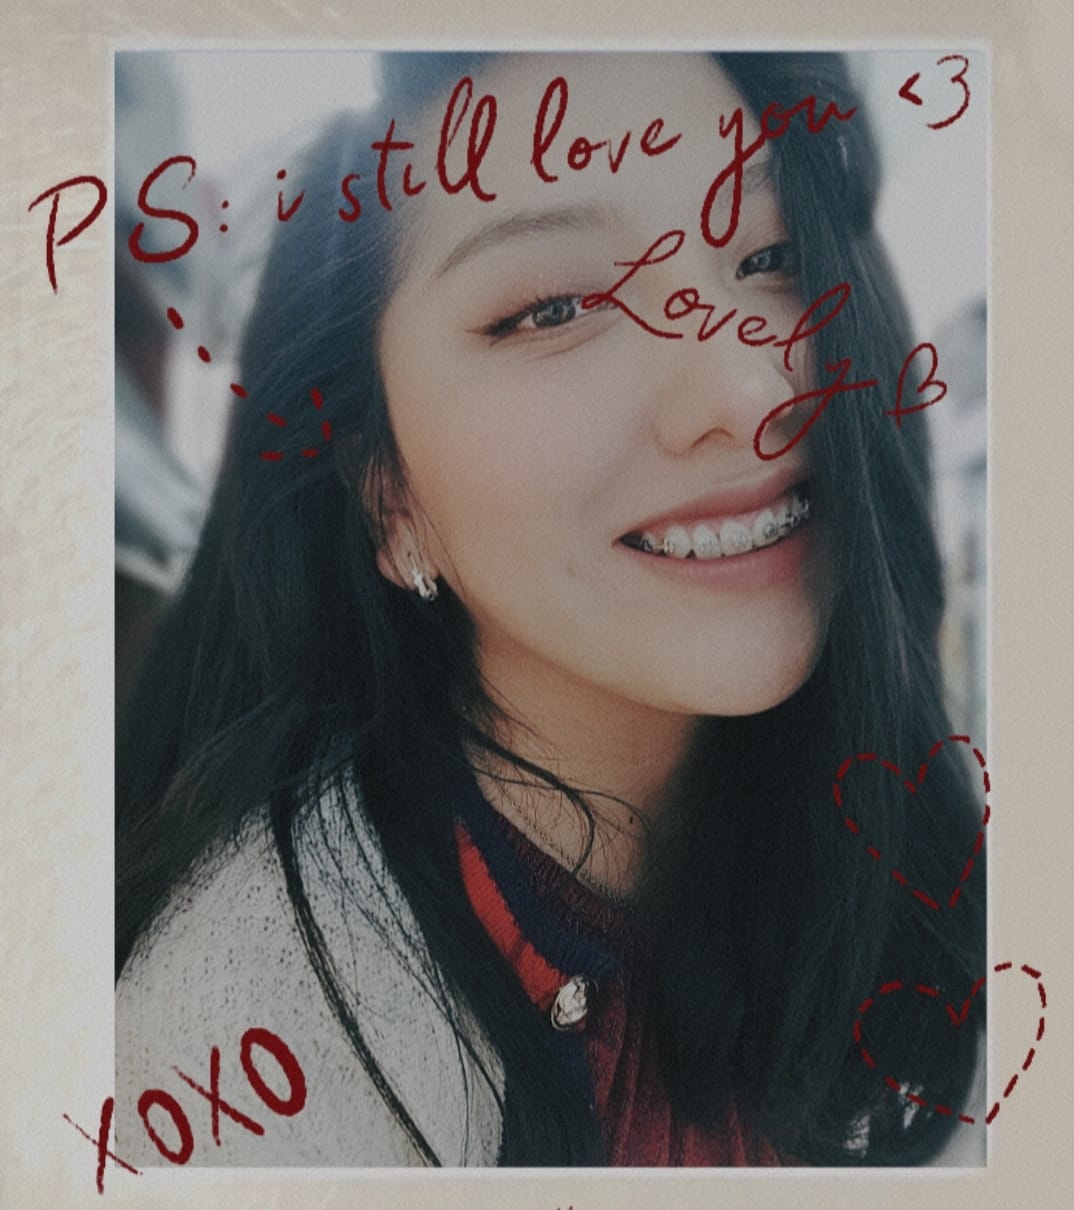 PS: i still love you <3
Lovely
XOXO